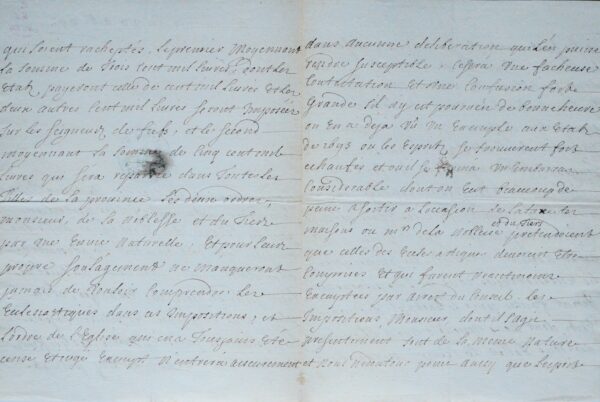 qui soient racheptés, le premier moyennant
la somme de trois cent mil livres, dont les
Etats payeront celle de cent mil livres et les
deux autres cent mil livres seront imposées
sur les seigneurs de fiefs, et le second
moyennant la somme de cinq cent mil
livres qui sera repartie dans toutes les
villes de la province. Les deux ordres,
monsieur, de la noblesse et du Tiers
par une Envie Naturelle, et pour leur
propre soulagement ne manqueront
jamais de vouloir comprendre les
Eclesiastiques dans ces impositions, et
l'ordre de l'Eglise qui en a Toujours été
censé et jugé Exempt n'entrera aucunement
dans aucune deliberation qui l'en puisse
rendre susceptible; cessera une facheuse
Contestation et une Confusion fort
Grande s'il n'y est pourveu de bonne heure
on en a déja vû un Exemple aux Etats
de 1695 ou les Esprits se trouverent fort
echaufés et ou il se un Embarras
Considerable dont on eut beaucoup de
peine a sortir a l'occasion de la taxe des
maisons ou mrs de la Noblesse et du Tiers pretendoient
que celles des Eclesiastiques devoient Etre
Comprises Et qui furent neantmoins
Exemptées par arrest du Conseil. Les
impositions Monsieur, dont il s'agit
presentement sont de la même Nature
et nous n'en doutons point aussy que l'esprit